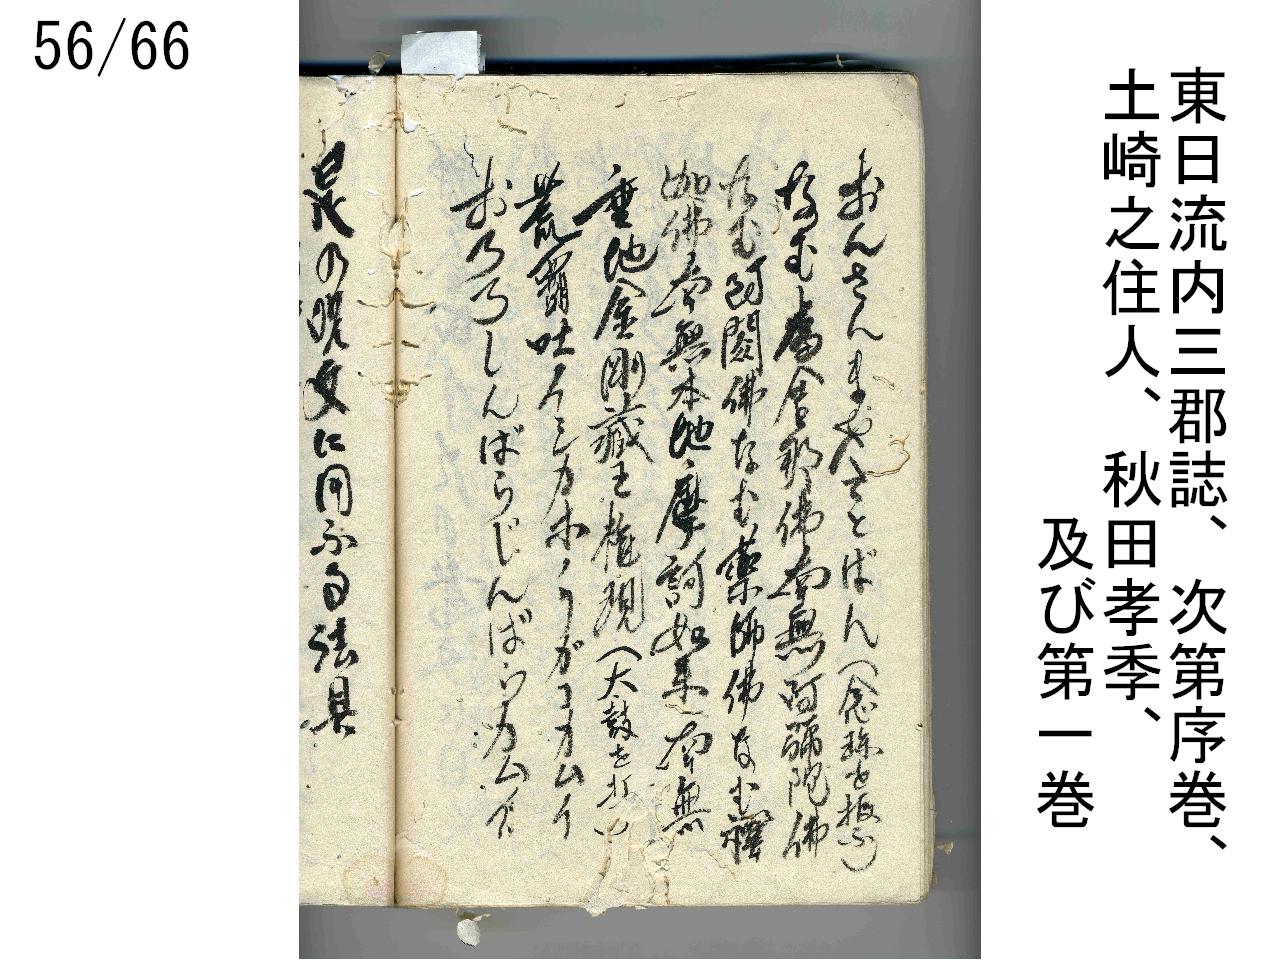 56/66
東日流内三郡誌、次第序巻、
土崎之住人、秋田孝季、
及び第一巻
おんさんまやさとばん（念珠を振ふ）
なむ盧舎那佛南無阿彌陀佛
なむ阿閦佛なむ薬師佛なむ釋
迦佛南無本地摩訶如来南無
垂地金剛蔵王権現（太鼓を
荒覇吐イシカホノリガコカムイ
しんばらじんばらカムイ
の晩文に用ふる法具